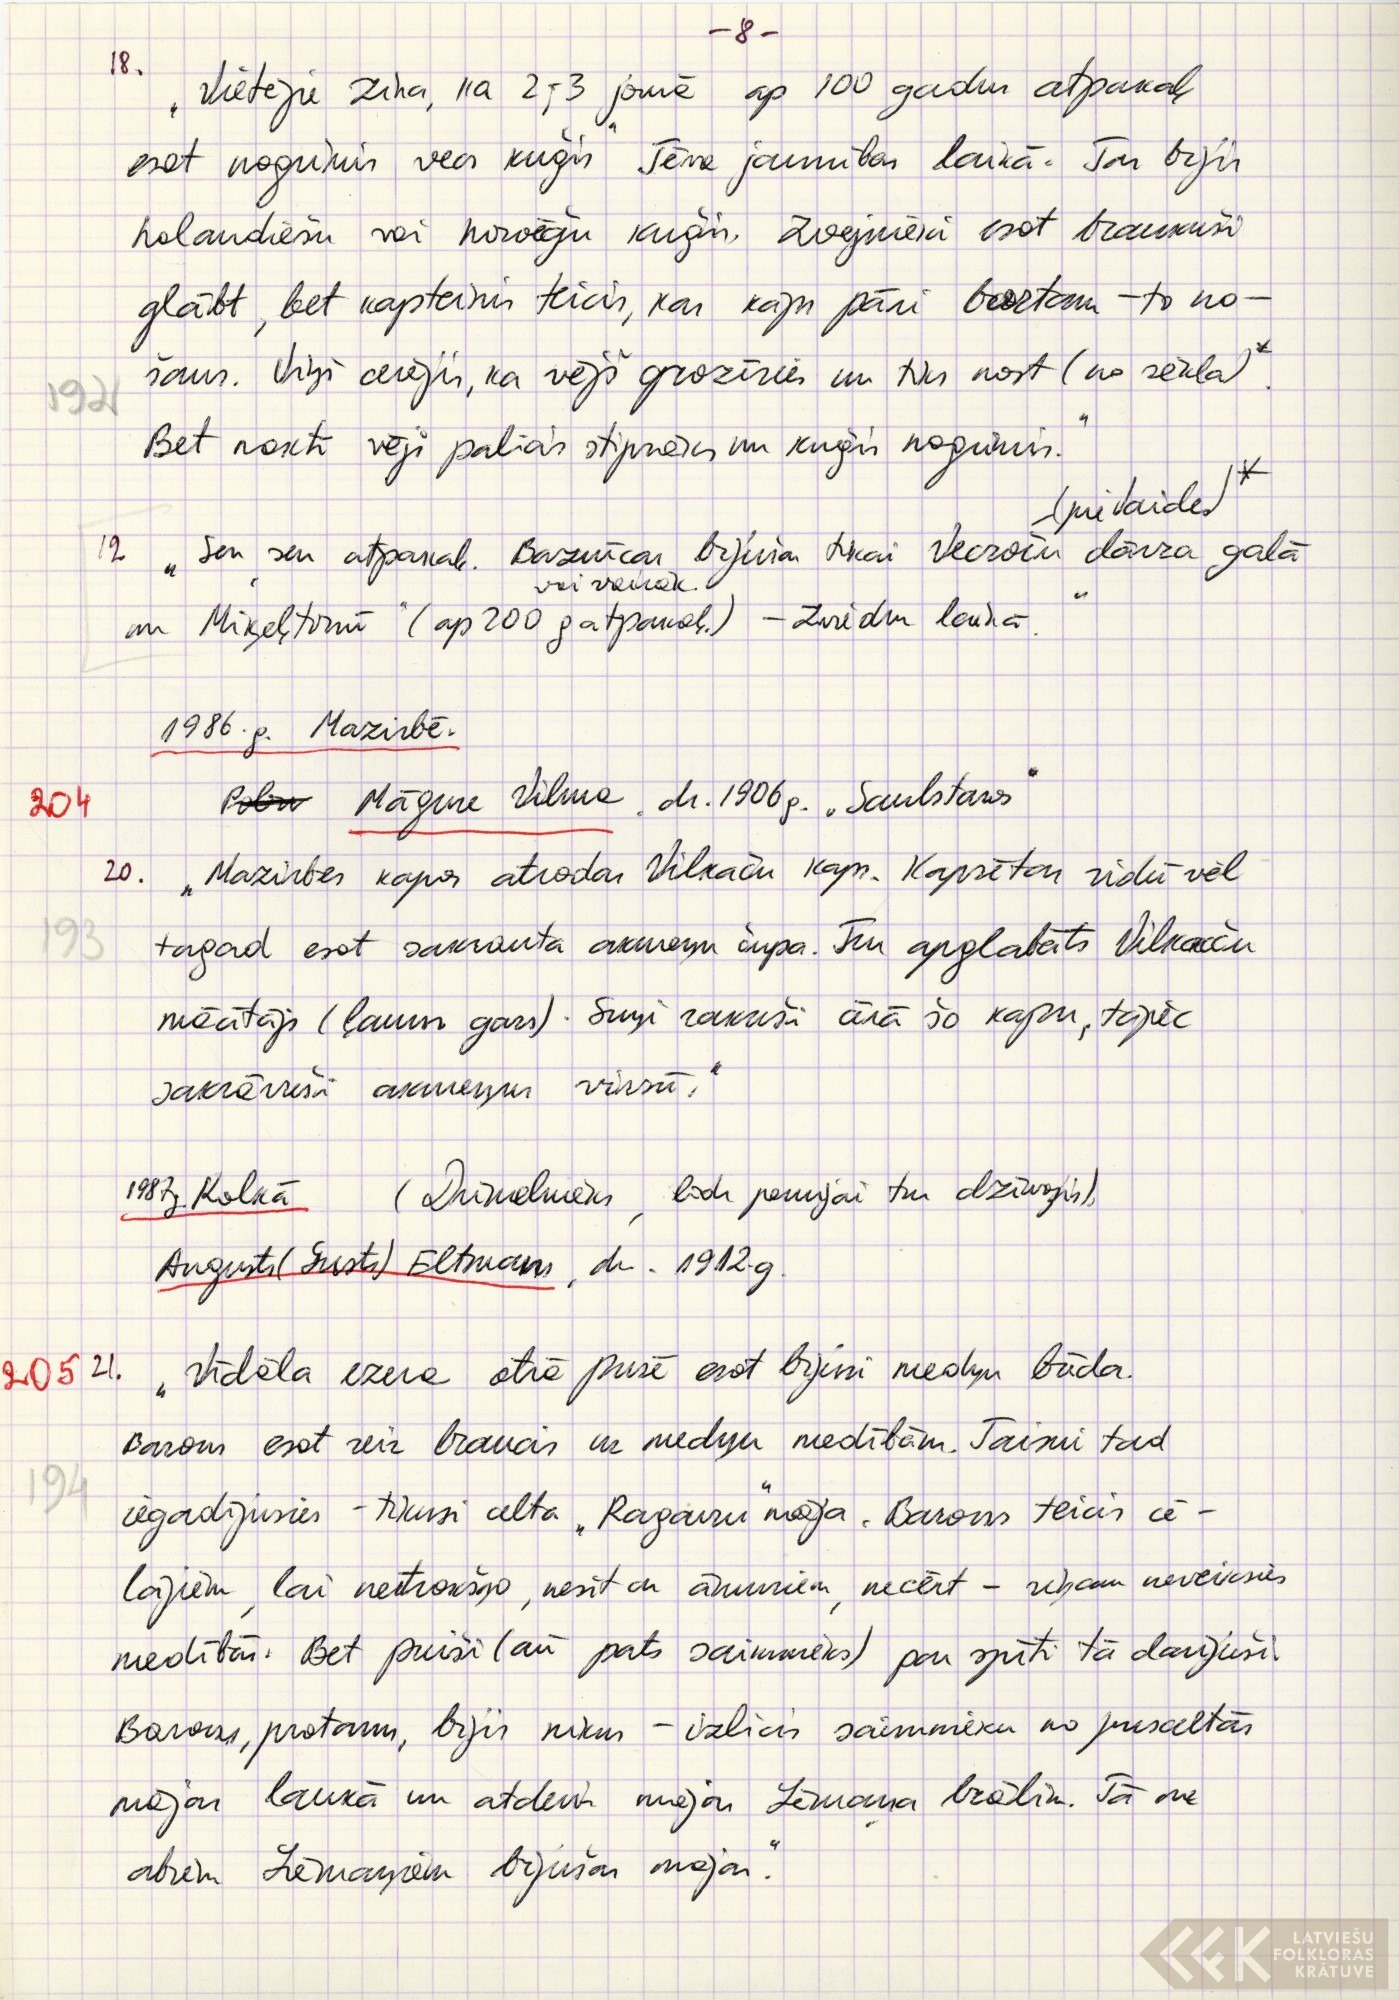 -8-
18.
„Vietējie zina, ka 2.-3 jomā ap 100 gadu atpakaļ
esot nogrimis vecs kuģis" Tēva jaunības laikā. Tas bijis
holandiešu vai norvēģu kuģis. Zvejnieki esot braukuši
glābt, bet kapteinis teicis, kas kāps pāri bortam - to no-
šaus. Viņi cerējis, ka vējš grozīsies un tiks nost (no sēkļa)*.
192
Bet naktī vējš palicis stiprāks un kuģis nogrimis."
(pie Vaides)*
19 „Sen, sen atpakaļ. Baznīcas bijušas tikai Vecroču dārza galā
vai vairāk.
un Miķeļtornī" (ap 200 g atpakaļ.) - Zviedru laikā."
1986.g. Mazirbē.
204 Māgure Vilma, dz. 1906 g. „Saulstaros"
20. „Mazirbes kapos atrodas Vilkaču kaps. Kapsētas vidū vēl
193
tagad esot sakrauta akmeņu čupa. Tur apglabāts Vilkaču
mācītājs (ļauns gars). Suņi rakuši ārā šo kapu, tāpēc
sakrāvuši akmeņus virsū."
1987g. Kolkā (Dzimelnieks, līdz pensijai tur dzīvojis).
Augusts (Gusts) Eltmans, dz. 1912.g.
205 21. „Vīdāla ezera otrā pusē esot bijusi medņu būda.
Barons esot reiz braucis uz medņu medībām. Taisni tad
194
iegadījusies - tikusi celta „Ragauzu" māja. Barons teicis cē-
lājiem, lai netrokšņo, nesit ar āmuriem, necērt - viņam neveiksies
medībās. Bet puiši (arī pats saimnieks) par spīti tā darījuši.
Barons, protams, bijis nikns - izlicis saimnieku no pusceltās
mājas laukā un atdevis mājas Lēmaņa brālim. Tā nu
abiem Lēmaņiem bijušas mājas."
LATVIEŠU
FOLKLORAS
KRĀTUVE